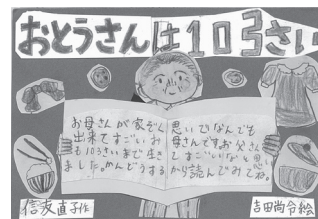 おとうさんは103さい
お母さんが家ぞく思いでなんでも
出来てすごいお母さんです。お父さん
も103さいまで生きてすごいなと思い
ました。かんどうするから読んでみてね。
信友直子作 吉田尚令絵